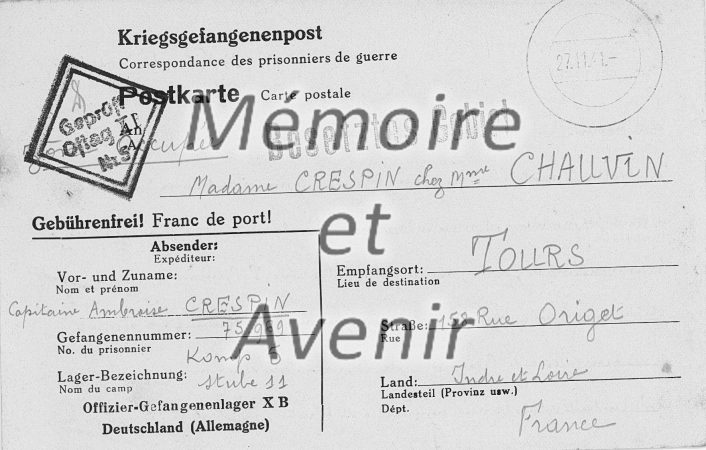 Kriegsgefangenenpost
Correspondance des prisonniers de guerre
27.11.41.-
Postkarte Carte postale
Geprüft
Oflag
Mémoire
Besetztes Gebiet
Madame CRESPIN chez Mme CHAUVIN
Gebührenfrei! Franc de port!
et
Absender:
Expéditeur:
Vor- und Zuname:
Nom et prénom
Capitaine Ambroise CRESPIN
Gefangenennummer: 75969
No. du prisonnier
Lager-Bezeichnung: Stube 11
Nom du camp
Offizier-Gefangenenlager X B
Deutschland (Allemagne)
Empfangsort: TOURS
Lieu de destination
Avenir
Straße: 152 Rue Origet
Rue
Land: Indre et Loire
Landesteil (Provinz usw.)
Dépt.
France